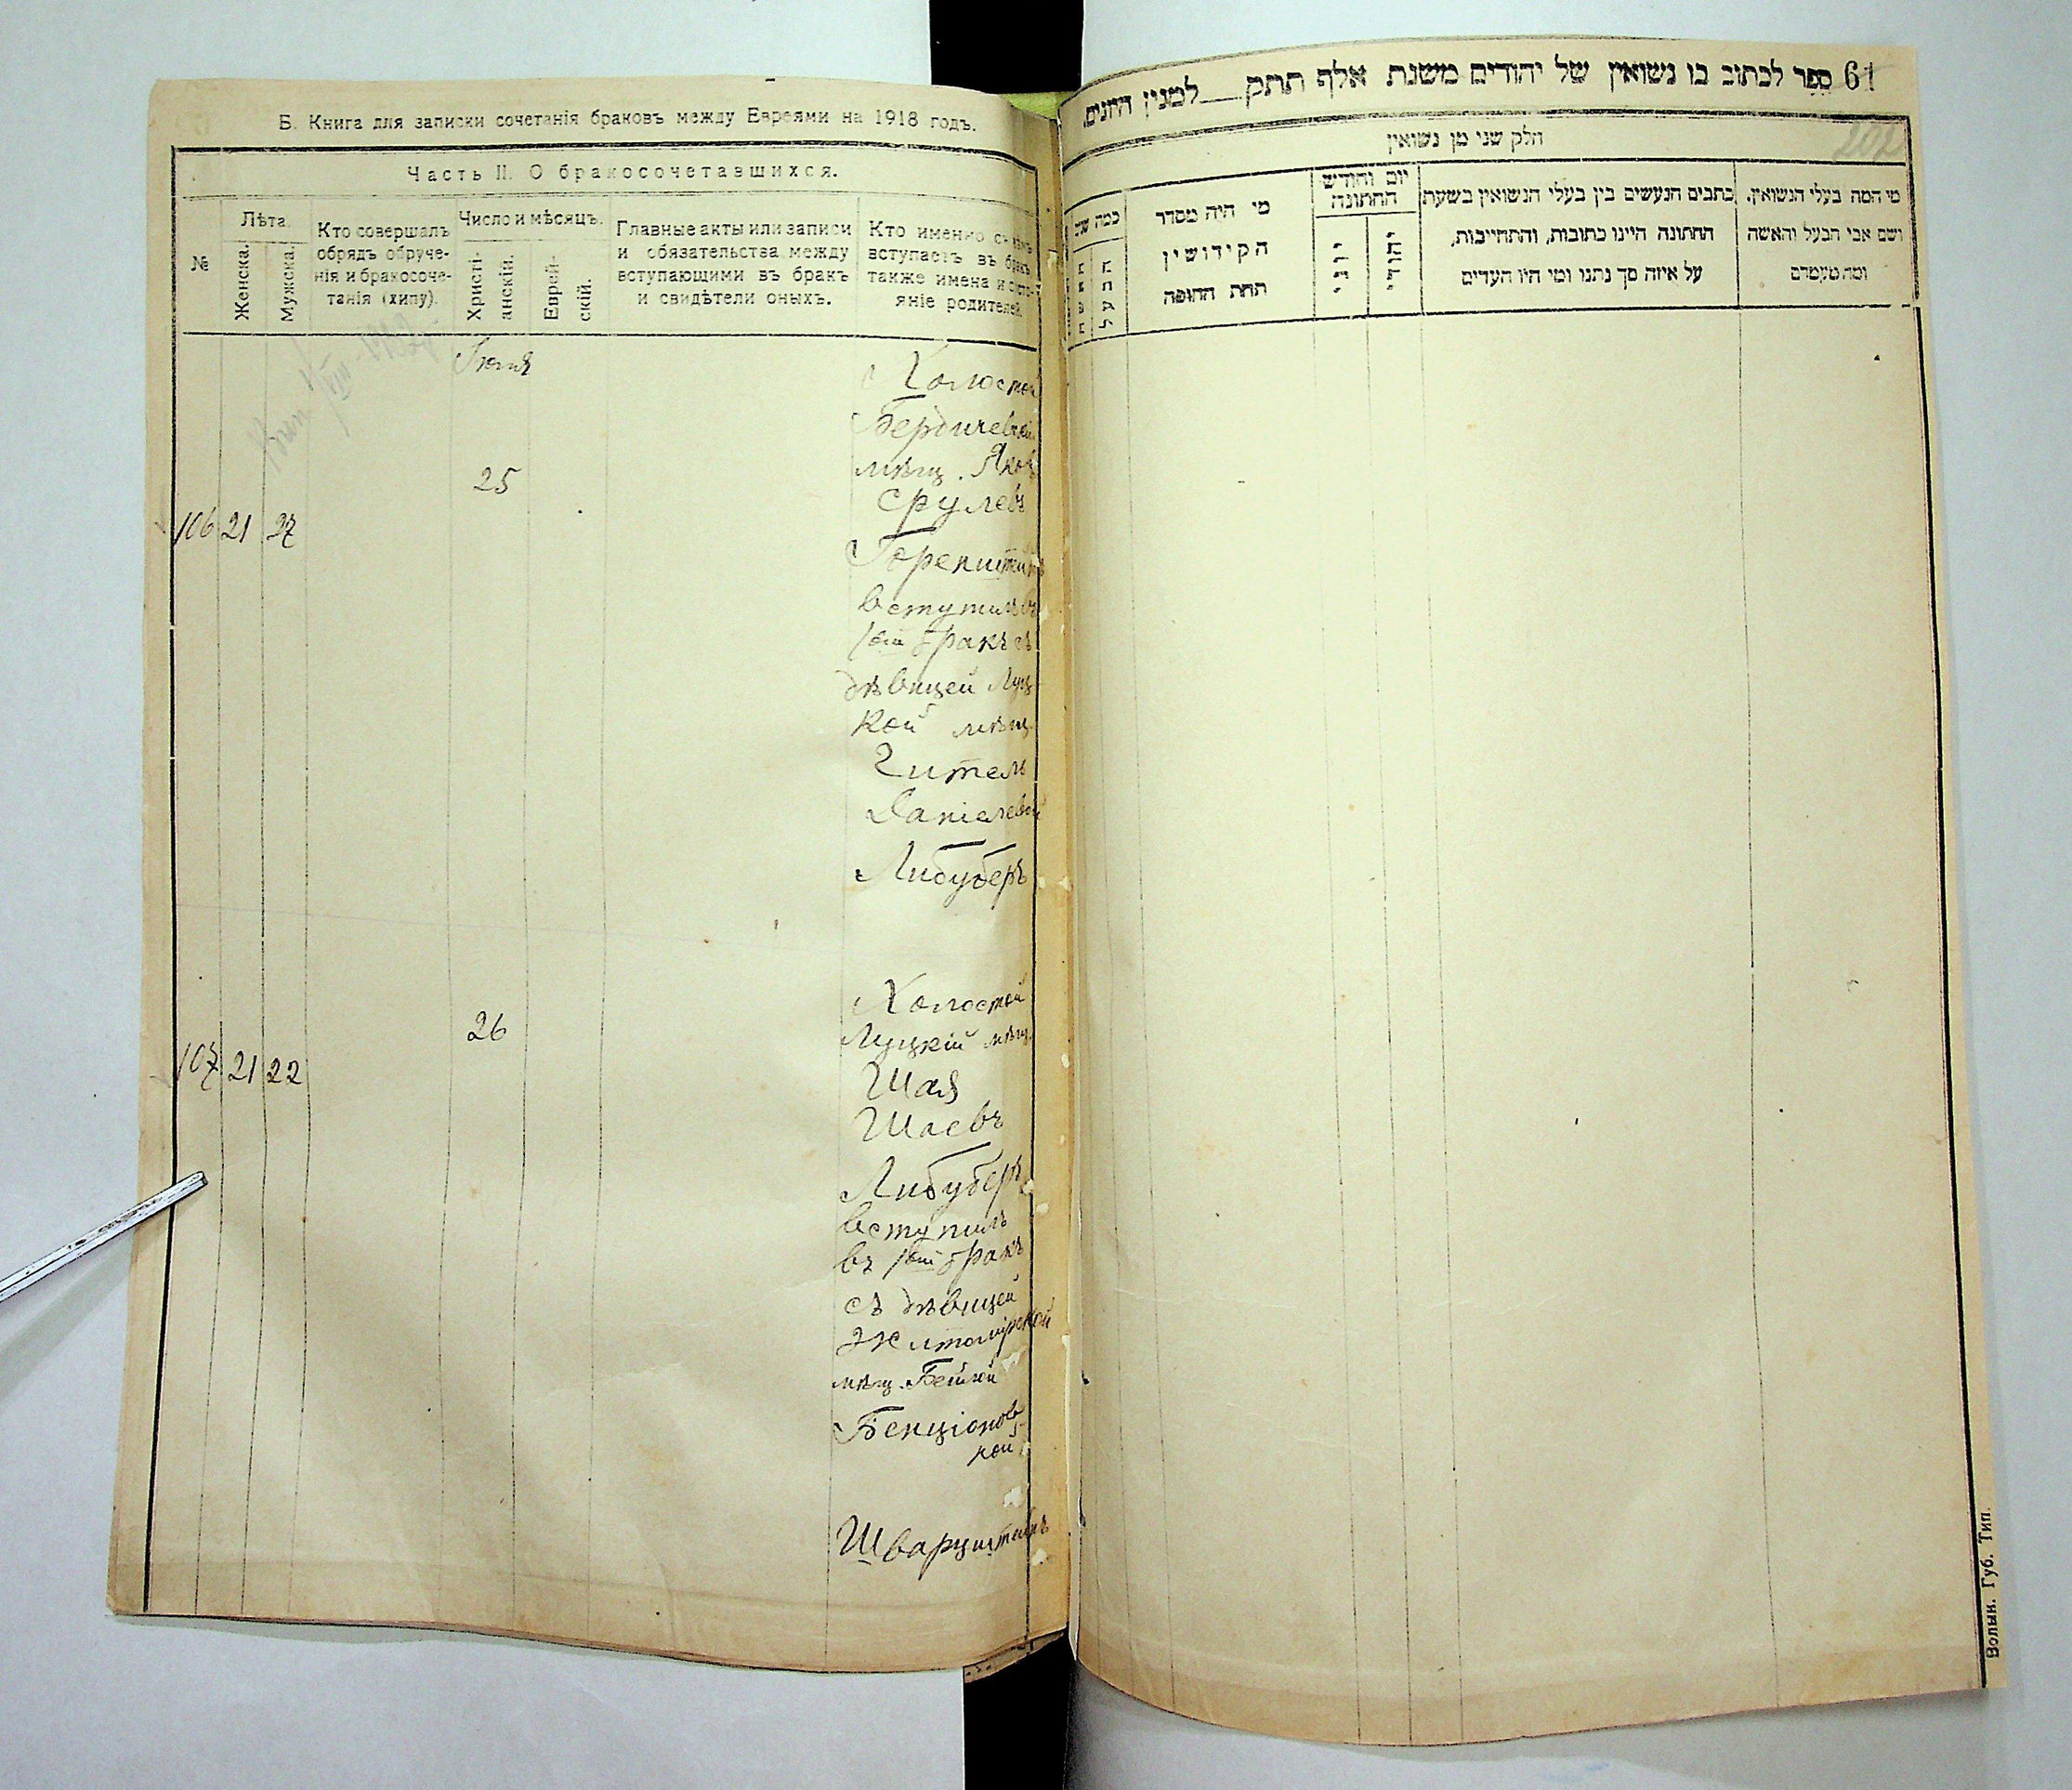 Б. Книга для записки сочетанія браковъ между Евреями на 1918 годъ.
Часть II. О бракосочетавшихся.
№
Лѣта.
Женска.
Мужска.
Кто совершалъ
обрядъ обруче-
нія и бракосоче-
танія (хипу).
Число и мѣсяцъ.
Христі-
анскій.
Еврей-
скій.
Главные акты или записи
и обязательства между
вступающими въ бракъ
и свидѣтели оныхъ.
Кто именно съ кѣмъ
вступаетъ въ бракъ
также имена и состо-
яніе родителей.
Іюня
106 21 27
25
Холостой
Бердичевскій
мѣщ. Яков
Срулевъ
Горенштейнъ
вступилъ въ
1ой бракъ съ
дѣвицей Луц-
кой мѣщ.
Читель
Даніелевой
Либуберъ
107 21 22
26
Холостой
Луцкій мѣщ.
Шая
Шаевъ
Либуберъ
вступилъ
въ 1ой бракъ
съ дѣвицей
Житомірской
мѣщ. Бейлой
Бенціонов
ной
Шварцштейнъ
61
ספר לכתוב בו נשואין של יהודים משנת אלף תתק למנין החנים.
חלק שני מן נשואין
כמה שנים
האשה
הבעל
מי היה מסדר
הקידושין
תחת החופה
יום וחודש
החתונה
יוני
יהודי
כתבים הנעשים בין בעלי הנשואין בשעת
החתונה היינו כתובות, והתחייבות,
על איזה סך נתנו ומי היו העדים
מי המה בעלי הנשואין,
ושם אבי הבעל והאשה
ומה מעמדם
Волын. Губ. Тип.